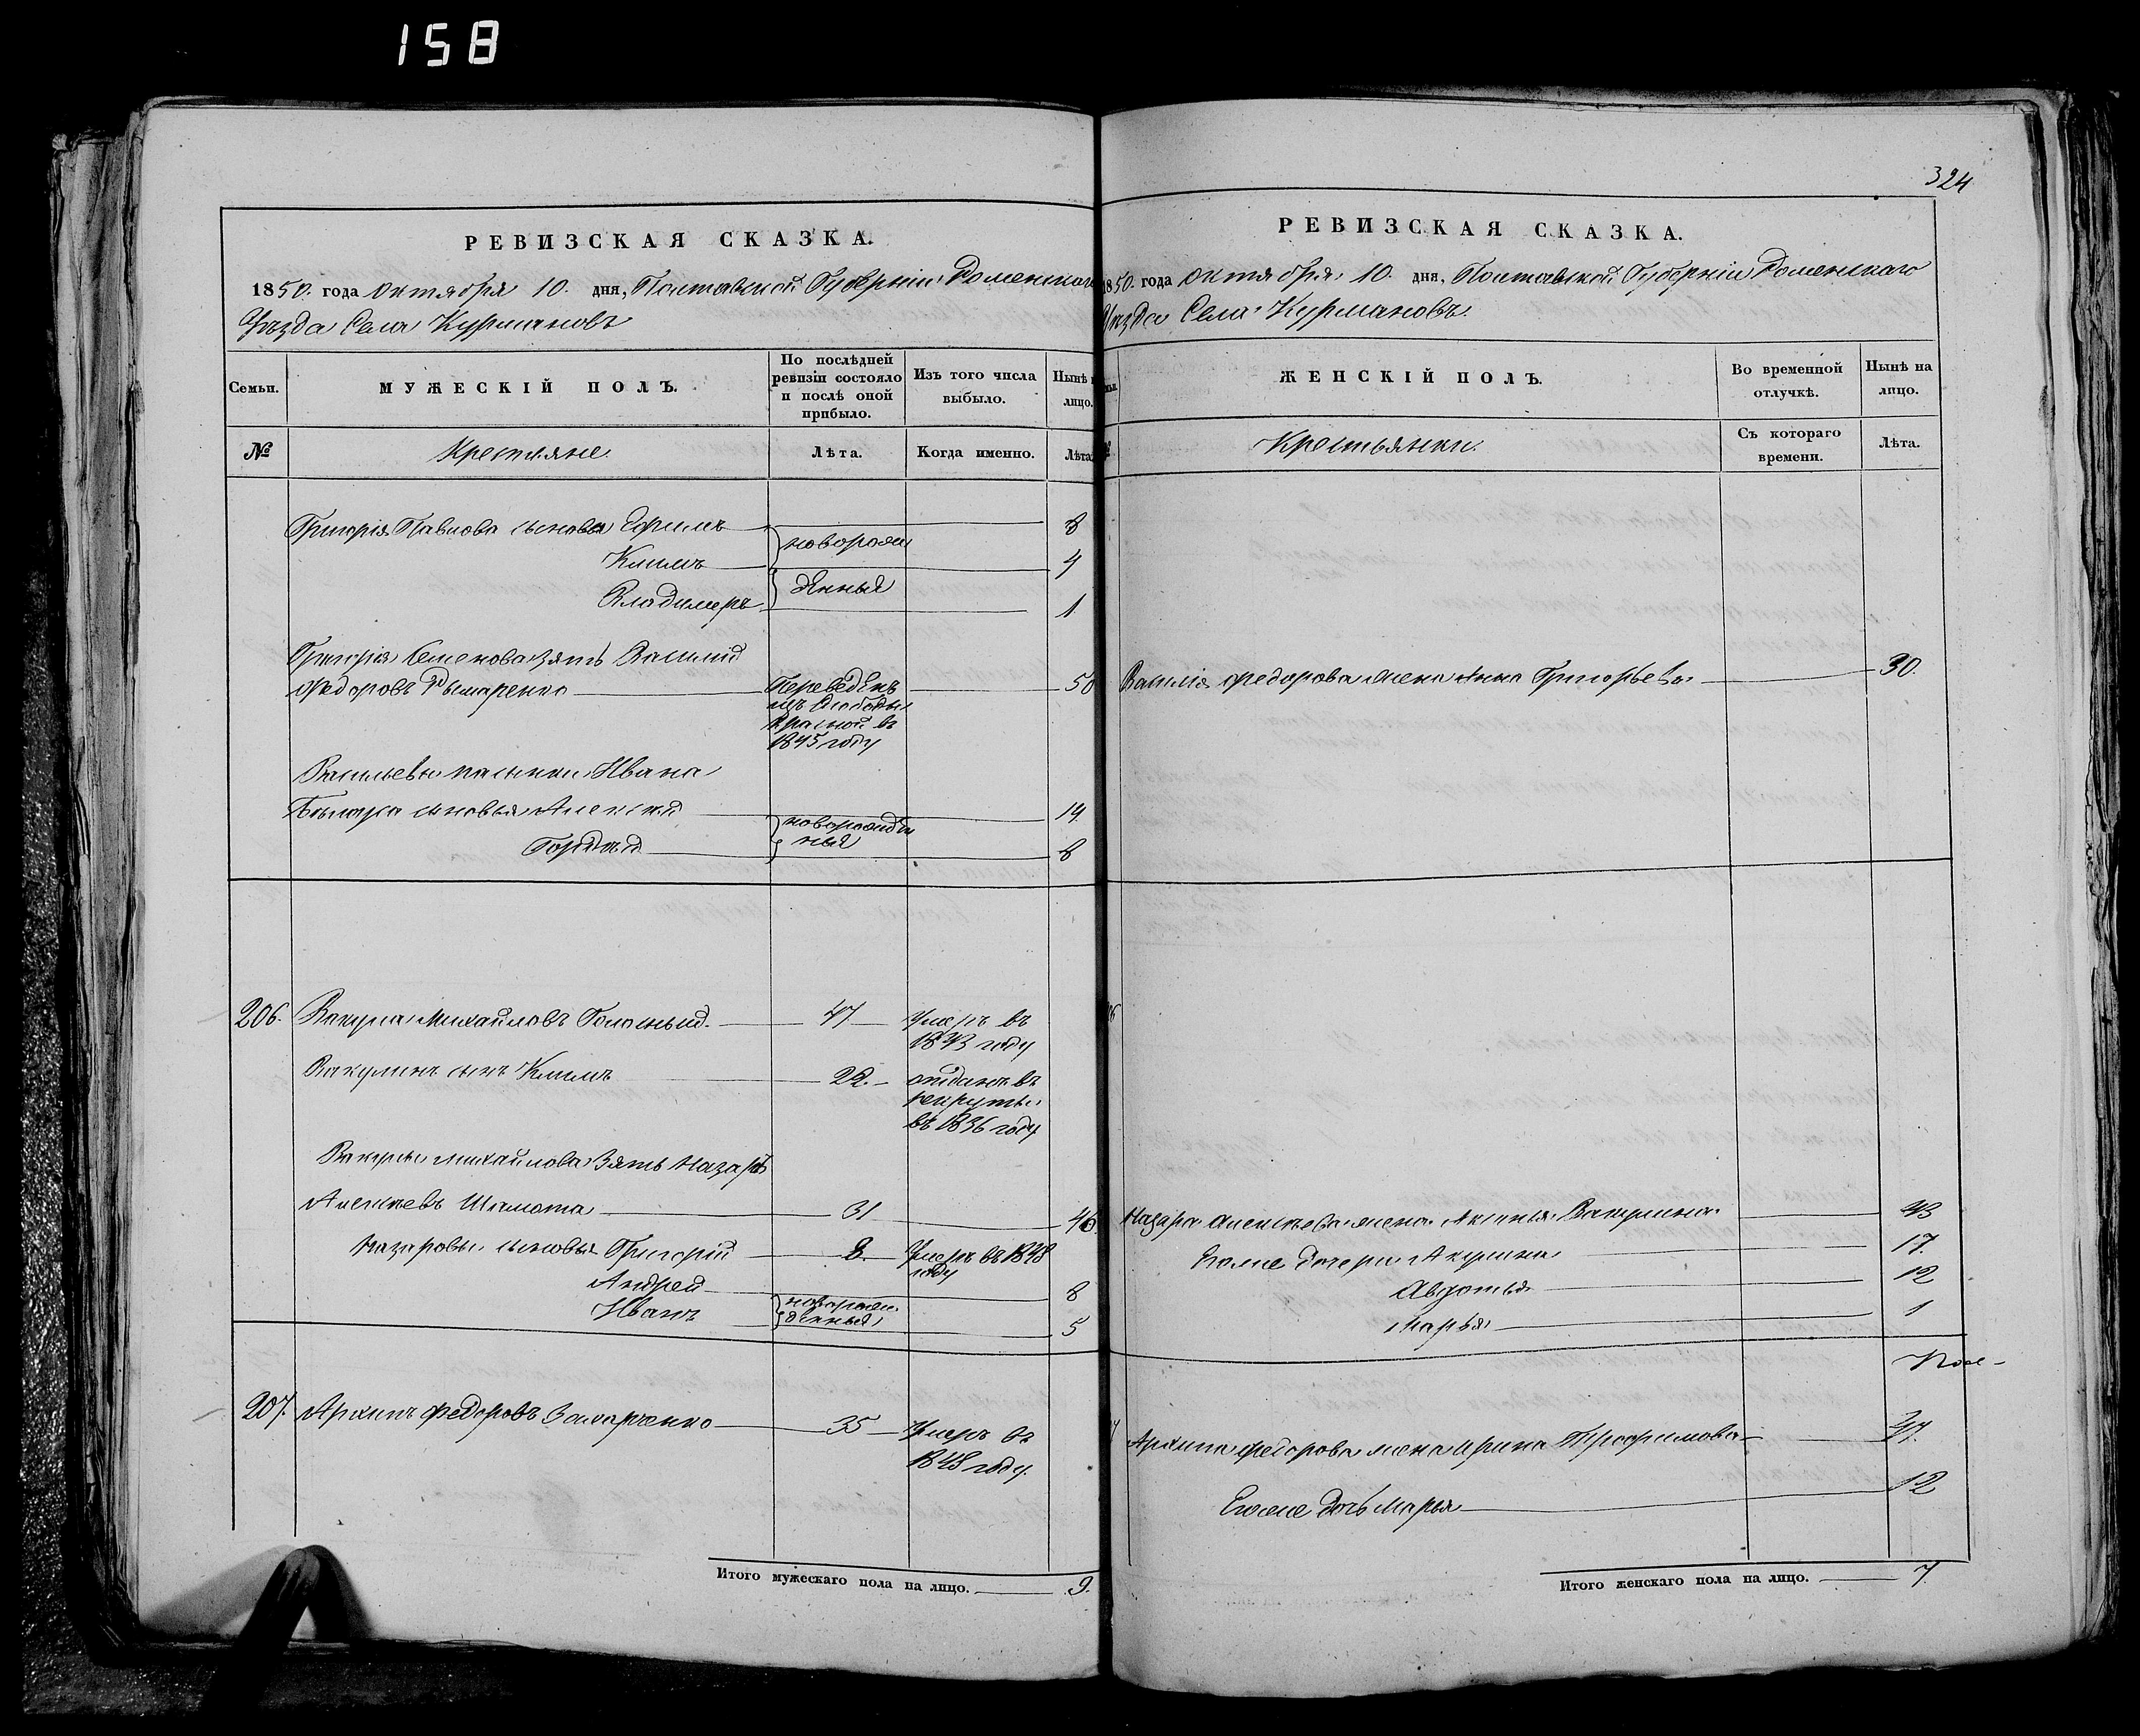 158
РЕВИЗСКАЯ СКАЗКА.
1850. года октября 10. дня, Полтавской Губерніи Роменскаго
Уѣзда Села Курмановъ
Семьи.
МУЖЕСКІЙ ПОЛЪ.
По послѣдней
ревизіи состояло
и послѣ оной
прибыло.
Изъ того числа
выбыло.
Нынѣ н
лицо.
№
Крестьяне
Лѣта.
Когда именно.
Лѣта
Григорія Павлова сыновья Ефимъ 8
новорож
Климъ 4
денные
Владимеръ 1
Григорія Семенова зять Василий
Федоровъ Рымаренко Переведенъ 50
изъ слободы
Красной въ
1845 году
Васильевы пасынки Ивана
сыновья Алексѣй 14
новорожден
ные
Гордѣй 8
206. Вакула Михайловъ Голосный. 47 Умеръ въ
1843 году
Вакулинъ сынъ Климъ 22. отданъ въ
рекруты
въ 1836 году
Вакулы Михайлова зять Назаръ
Алексѣевъ Шамота 31 46
Назаровы сыновья Григорій 8. Умеръ въ 1848
году
Андрей 8
новорож
Иванъ денные 5
207. Архипъ Федоровъ Захарченко 35 Умеръ въ
1848 году.
Итого мужескаго пола на лицо. 9.
324
РЕВИЗСКАЯ СКАЗКА.
1850. года октября 10. дня, Полтавской Губерніи Роменскаго
Уѣзда Села Курмановъ.
ЖЕНСКІЙ ПОЛЪ.
Во временной
отлучкѣ.
Нынѣ на
лицо.
Крестьянки.
Съ котораго
времени.
Лѣта.
Василія Федорова жена Анна Григорьева 30.
Назара Алексѣева жена Аксинья Вакулина 43
Егоже дочери Акулина 17.
Авдотья 12
Марья 1
Архипа Федорова жена Ирина Трофимова 47.
Егоже дочь Марья 12
Итого женскаго пола на лицо. 7